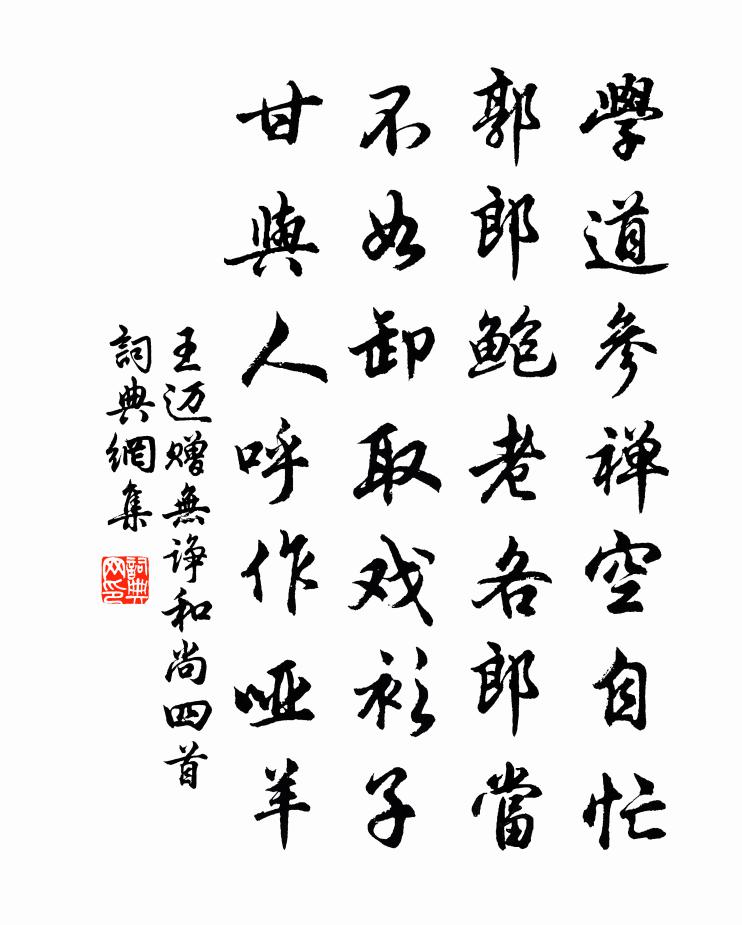 學道參禅空自忙
郭郎鲍老各郎當
不如卸取戏衫子
甘與人呼作哑羊
王迈赠無诤和尚四首
詞典網集
詞典网印